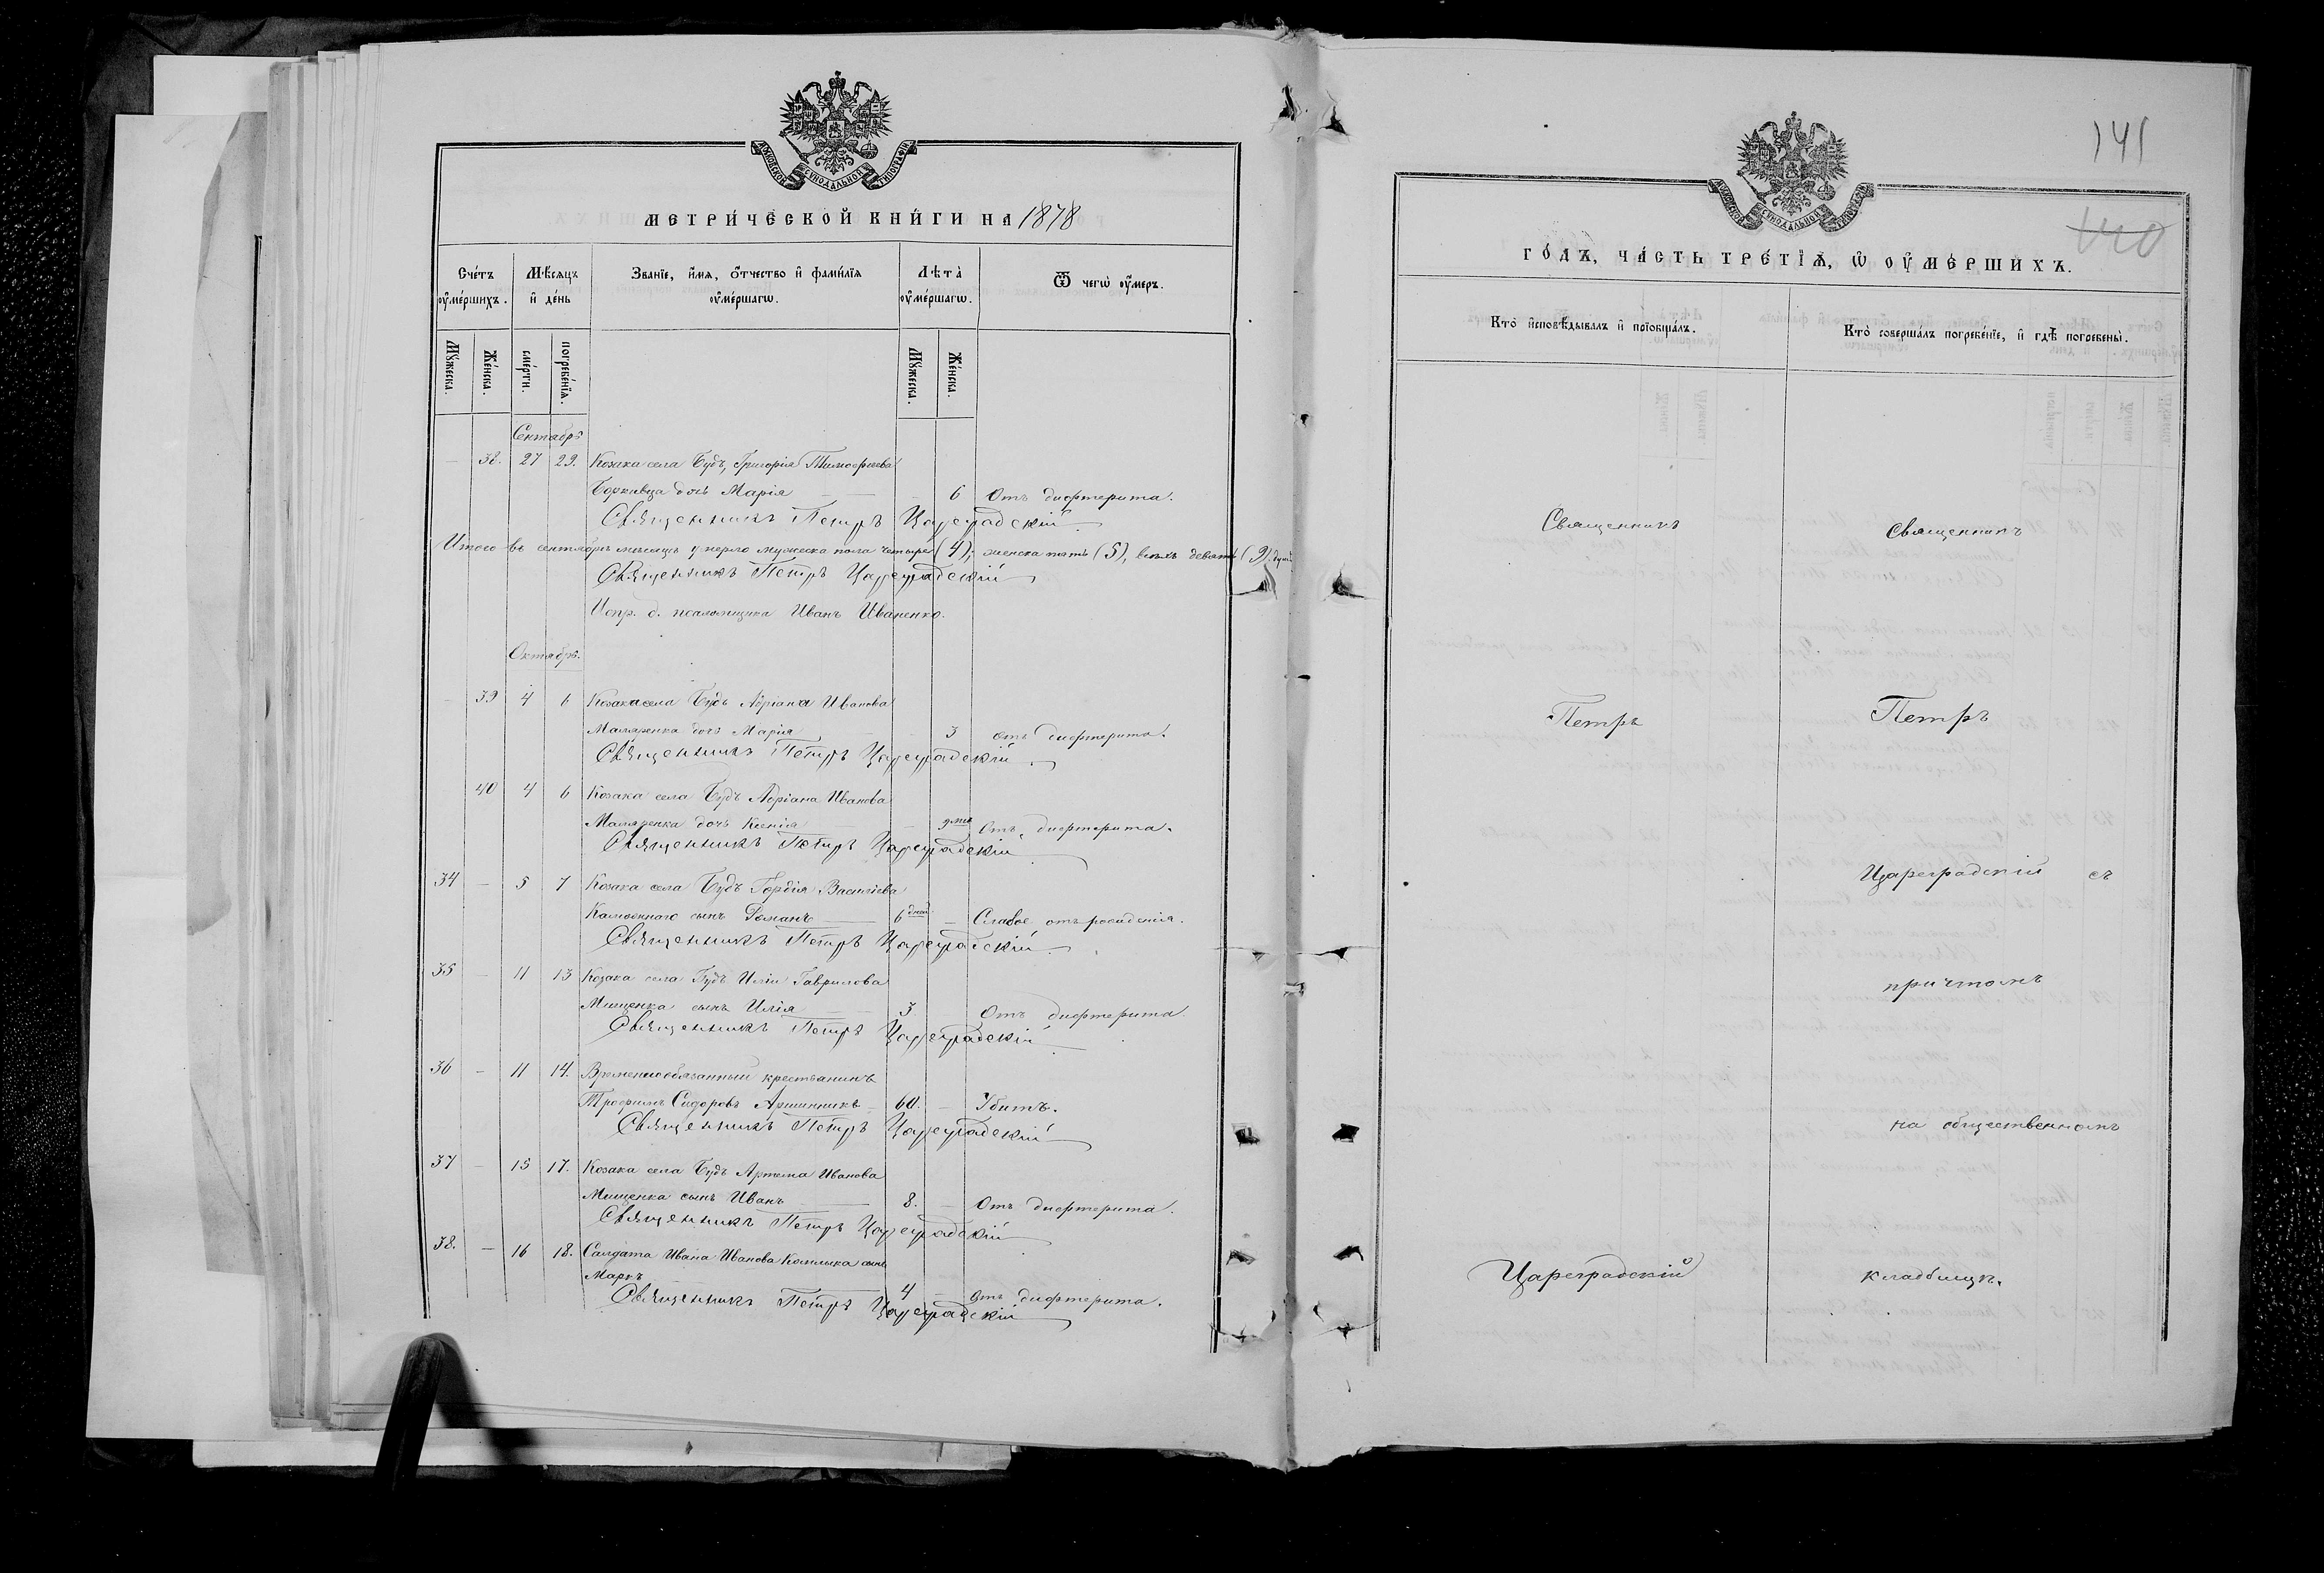 МОСКОВСКОЙ СѴНОДАЛЬНОЙ ТИПОГРАФІИ
МЕТРИ́ЧЕСКОЙ КНИ́ГИ НА 1878
Сче́тъ оу҆ме́ршихъ.
Мѣ́сяцъ и҆ де́нь
Зва́нїе, и҆́мѧ, ѻ҆́тчество и҆ фами́лїѧ оу҆ме́ршагѡ.
Лѣ́та оу҆ме́ршагѡ.
Ѿ чегѡ̀ оу҆́меръ.
Мꙋ́жеска.
Же́нска.
сме́рти.
погребе́нїѧ.
Мꙋ́жеска.
Же́нска.
Сентябрь
— 38. 27 29. Козака села Будъ, Григорія Тимофеева
Борковца дочь Марія — — 6 Отъ дифтерита.
Священникъ Петръ Цареградскій
Итого въ сентябрѣ мѣсяцѣ умерло мужеска пола четыре (4); женска пять (5), всѣхъ девять (9) душъ
Священникъ Петръ Цареградскій
Испр. д. псаломщика Иванъ Иваненко.
Октябрь.
— 39 4 6 Козака села Будъ Адріана Иванова
Маляренка дочь Марія 3 отъ дифтерита.
Священникъ Петръ Цареградскій
40 4 6 Козака села Будъ Адріана Иванова
Маляренка дочь Ксенія — Отъ дифтерита.
Священникъ Петръ Цареградскій
34 — 5 7 Козака села Будъ Гордія Васильева
сынъ Романъ — 6 дней — Слабое отъ рожденія.
Священникъ Петръ Цареградскій
35 — 11 13 Козака села Будъ Иліи Гаврилова
Мищенка сынъ Илія — 3 Отъ дифтерита
Священникъ Петръ Цареградскій
36 — 11 14. Временнообязанный крестьянинъ
Трофимъ Сидоровъ — 60. — Убитъ.
Священникъ Петръ Цареградскій
37 — 15 17. Козака села Будъ Артема Иванова
Мищенка сынъ Иванъ — 8. — Отъ дифтерита.
Священникъ Петръ Цареградскій
38. — 16 18. Солдата Ивана Иванова сынъ
Маркъ — 4 — Отъ дифтерита.
Священникъ Петръ Цареградскій
141
140
МОСКОВСКОЙ СѴНОДАЛЬНОЙ ТИПОГРАФІИ
ГО́ДЪ, ЧА́СТЬ ТРЕ́ТЇѦ, Ѡ҆ ОУ҆МЕ́РШИХЪ.
Кто̀ и҆сповѣ́дывалъ и҆ прїобща́лъ.
Кто̀ соверша́лъ погребе́нїе, и҆ гдѣ̀ погребены̀.
Священникъ
Священникъ
Петръ
Петръ
Цареградскій съ
причтомъ
на общественномъ
Цареградскій
кладбищѣ.